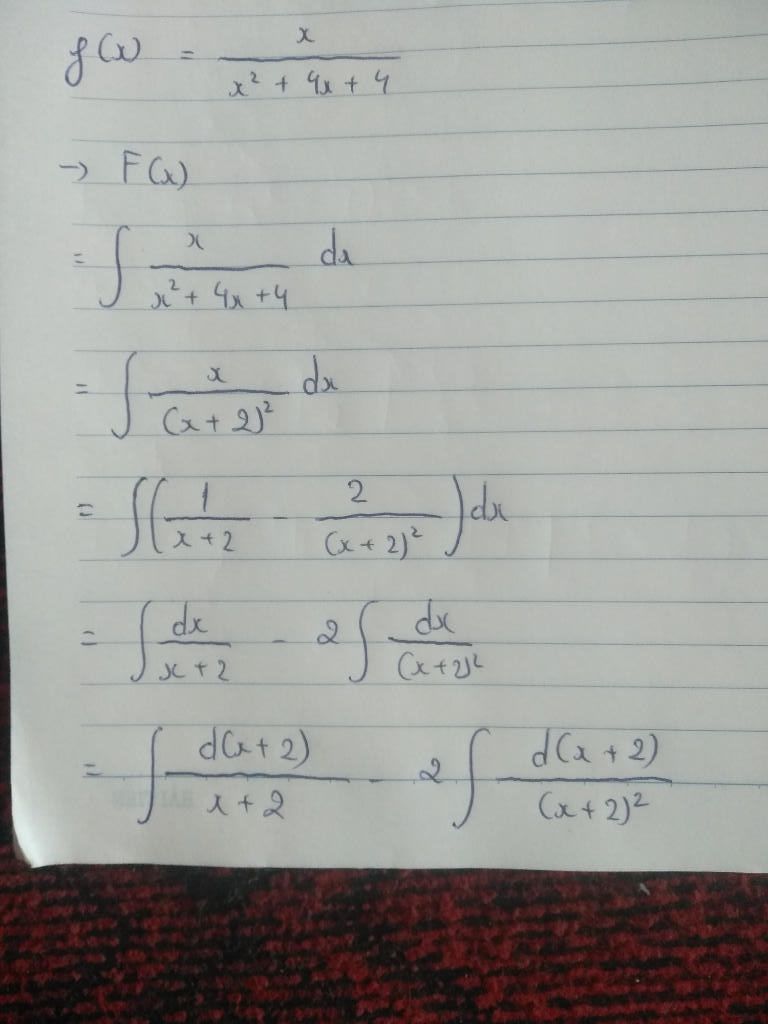 f(x) = x / (x² + 4x + 4)
→ F(x)
= ∫ x / (x² + 4x + 4) dx
= ∫ x / (x + 2)² dx
= ∫ (1 / (x + 2) - 2 / (x + 2)²) dx
= ∫ dx / (x + 2) - 2 ∫ dx / (x + 2)²
= ∫ d(x + 2) / (x + 2) - 2 ∫ d(x + 2) / (x + 2)²